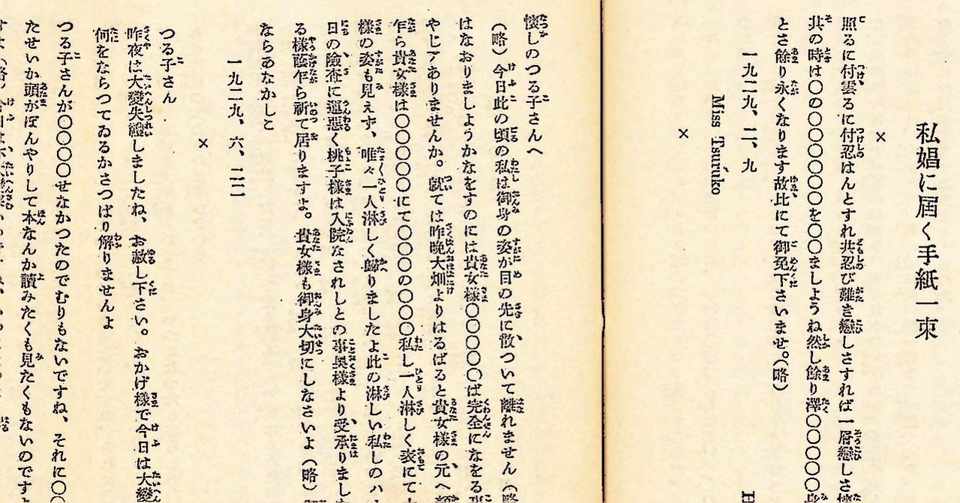 私娼に屆く手紙一束
×
照るに付雲るに付忍はんとすれ共忍び難き戀しさすれば一層戀しさ
共の時は〇の〇〇〇〇〇〇を〇〇ましようね然し餘り澤〇〇〇〇
とさ餘り永くなります故比にて御免下さいませ。(略)
一九二九、二、九
Miss Tsuruko
×
懷しのつる子さんへ
(略)今日此の頃の私は御身の姿が目の先に散ついて離れません(略
はなおりましようかなをすのには貴女樣〇〇〇〇ば完全になをる
やじアありませんか。就ては昨晩大畑よりはるばると貴女樣の元へ
乍ら貴女樣は〇〇〇〇にて〇〇〇の〇〇〇私し一人淋しく表にて
樣の姿も見えず、唯々一人淋しく歸りましたよ此の淋しい私しのハ
日の險査に運惡く桃子樣は入院なされしとの事奧樣より受承りまし
る樣蔭乍ら祈て居りますよ。貴女樣も御身大切にしなさいよ(略)
ならあなかしと
一九二九、六、二二
×
つる子さん
昨夜は大變失禮しましたね、お赦し下さい。おかげ樣で今日は大變
何をならつてゐるかさつぱり解りませんよ
つる子さんが〇〇〇〇せなかつたのでむりもないですね、それに〇〇
たせいか頭がぼんやりして本なんか讀みたくも見たくもないのですよ